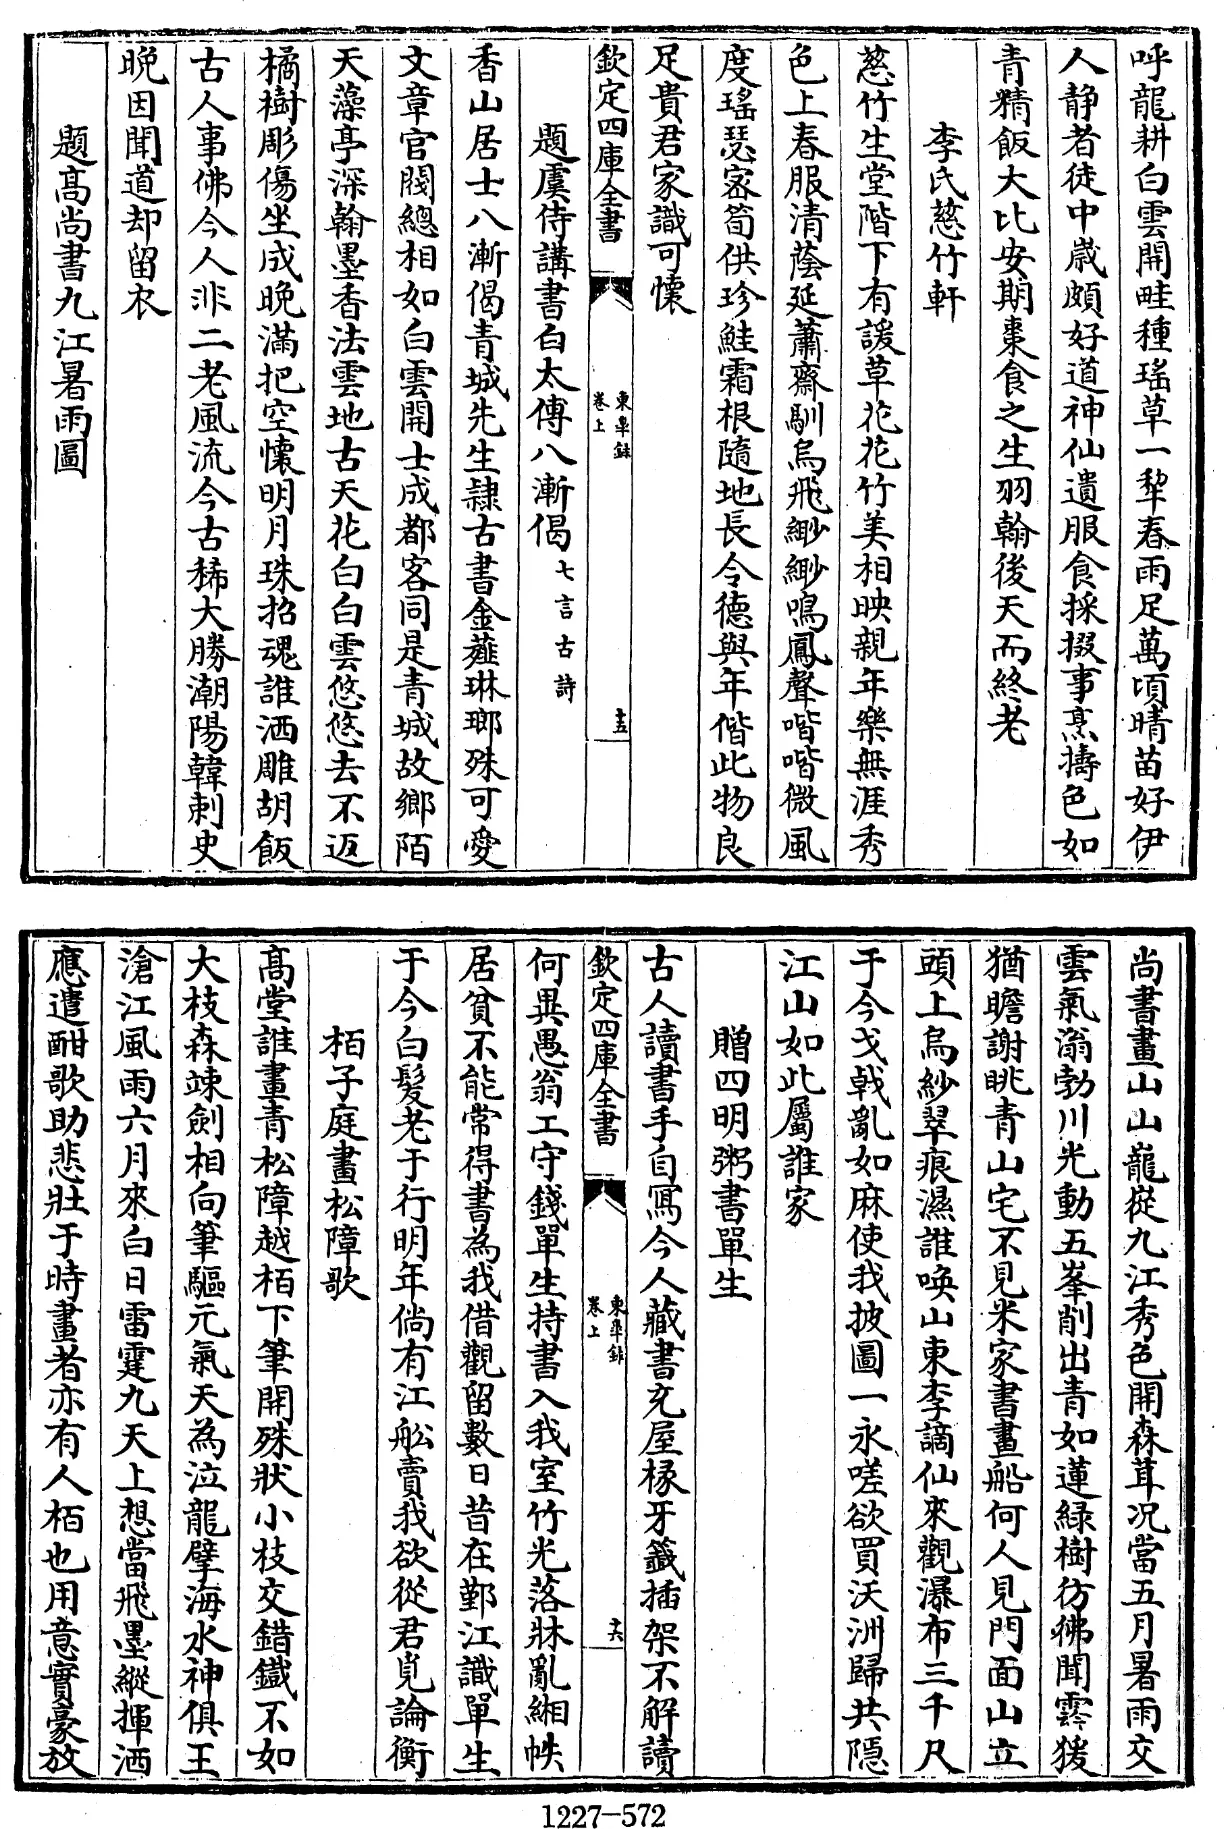 呼龍耕白雲開畦種瑤草一犂春雨足萬頃晴苗好伊
人静者徒中歳頗好道神仙遺服食採掇事烹擣色如
青精飯大比安期棗食之生羽翰後天而終老
李氏慈竹軒
慈竹生堂階下有諼草花花竹美相映親年樂無涯秀
色上春服清蔭延蕭齋馴烏飛緲緲鳴鳳聲喈喈微風
度瑤瑟宻筍供珍鮭霜根隨地長令德與年偕此物良
足貴君家識可懷
欽定四庫全書
東臯錄
卷上
十五
題虞侍講書白太傅八漸偈七言古詩
香山居士八漸偈青城先生隷古書金薤琳瑯殊可愛
文章官閥總相如白雲開士成都客同是青城故鄉陌
天藻亭深翰墨香法雲地古天花白白雲悠悠去不返
橘樹彫傷坐成晚滿把空懷明月珠招魂誰洒雕胡飯
古人事佛今人非二老風流今古稀大勝潮陽韓刺史
晚因聞道却留衣
題髙尚書九江暑雨圖
尚書畫山山巃嵸九江秀色開森茸况當五月暑雨交
雲氣滃勃川光動五峯削出青如蓮緑樹彷彿聞雺猨
猶瞻謝眺青山宅不見米家書畫船何人見門面山立
頭上烏紗翠痕濕誰喚山東李謫仙來觀瀑布三千尺
于今戈戟亂如麻使我披圖一永嗟欲買沃洲歸共隱
江山如此屬誰家
贈四明粥書單生
古人讀書手自寫今人藏書充屋椽牙籤插架不解讀
欽定四庫全書
東臯錄
卷上
十六
何異愚翁工守錢單生持書入我室竹光落牀亂緗帙
居貧不能常得書為我借觀留數日昔在鄞江識單生
于今白髮老于行明年倘有江舩賣我欲從君覓論衡
栢子庭畫松障歌
髙堂誰畫青松障越栢下筆開殊狀小枝交錯鐵不如
大枝森竦劍相向筆驅元氣天為泣龍擘海水神俱王
滄江風雨六月來白日雷霆九天上想當飛墨縱揮洒
應遣酣歌助悲壯于時畫者亦有人栢也用意實豪放
1227-572